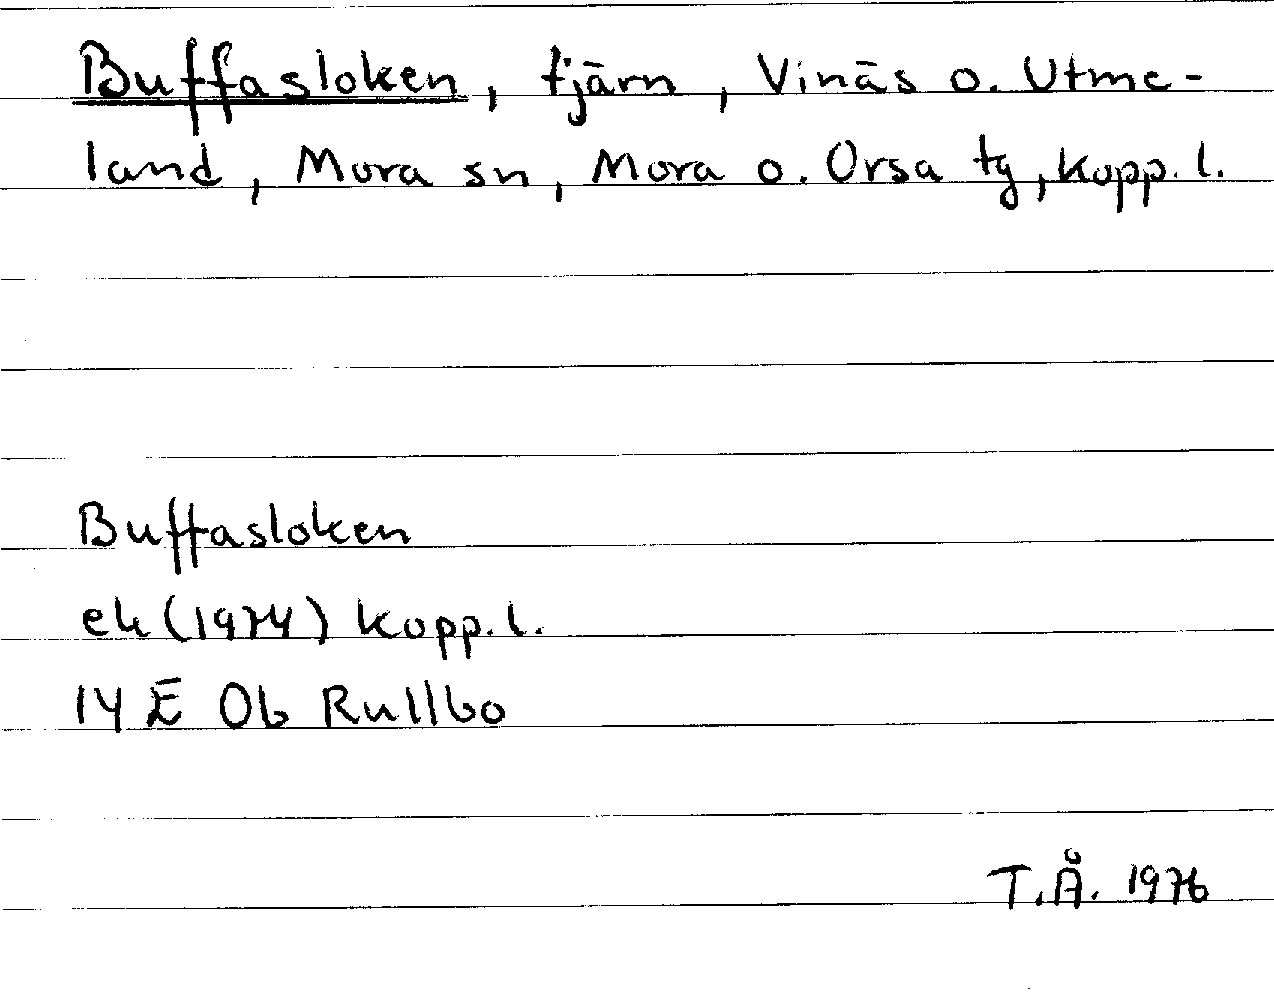 Buffasloken, tjärn, Vinäs o. Utme-
land, Mora sn, Mora o. Orsa tg, Kopp. l.
Buffasloken
ek (1974) Kopp. l.
14 E 0b Rullbo
T.Å. 1976